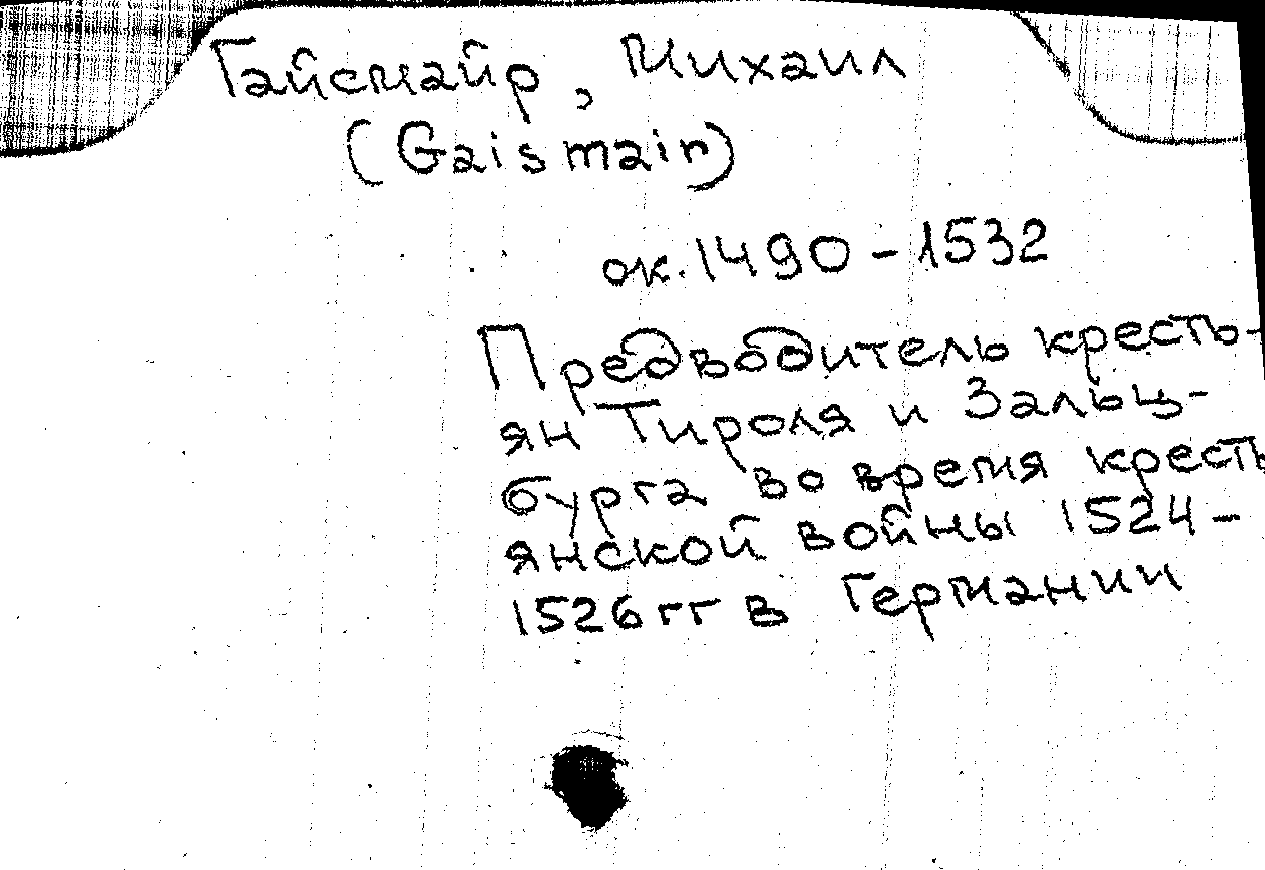 Гайсмайр, Михаил
(Gaismair)
ок. 1490 - 1532
Предводитель кресть-
ян Тироля и Зальц-
бурга во время кресть
янской войны 1524 -
1526 гг в Германии